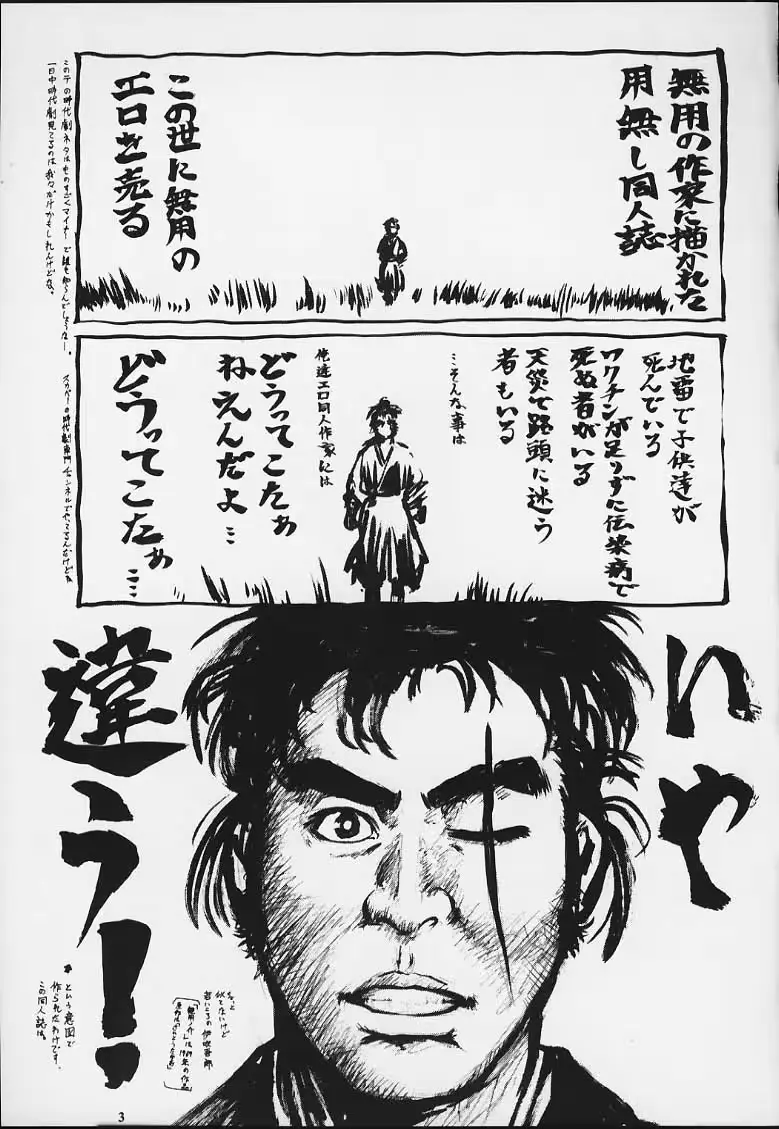 無用の作家に描かれた
用無し同人誌
この世に無用の
エロを売る
この手の時代劇ネタはものすごくマイナーで誰も知らんでしょうなー。
一日中時代劇見てるのは我々だけかもしれんけどな。
地雷で子供達が
死んでいる
ワクチンが足りずに伝染病で
死ぬ者がいる
天災で路頭に迷う
者もいる
…そんな事は
俺達エロ同人作家には
どうってこたぁ
ねえんだよ…
どうってこたぁ……
スカパーの時代劇専門チャンネルでやってるんだけどね
いや
違う!
なっと
似てないけど
若いころの伊吹吾郎
「無用ノ介」は1969年の作品
という意図で
作られたわけです、
この同人誌は。
3